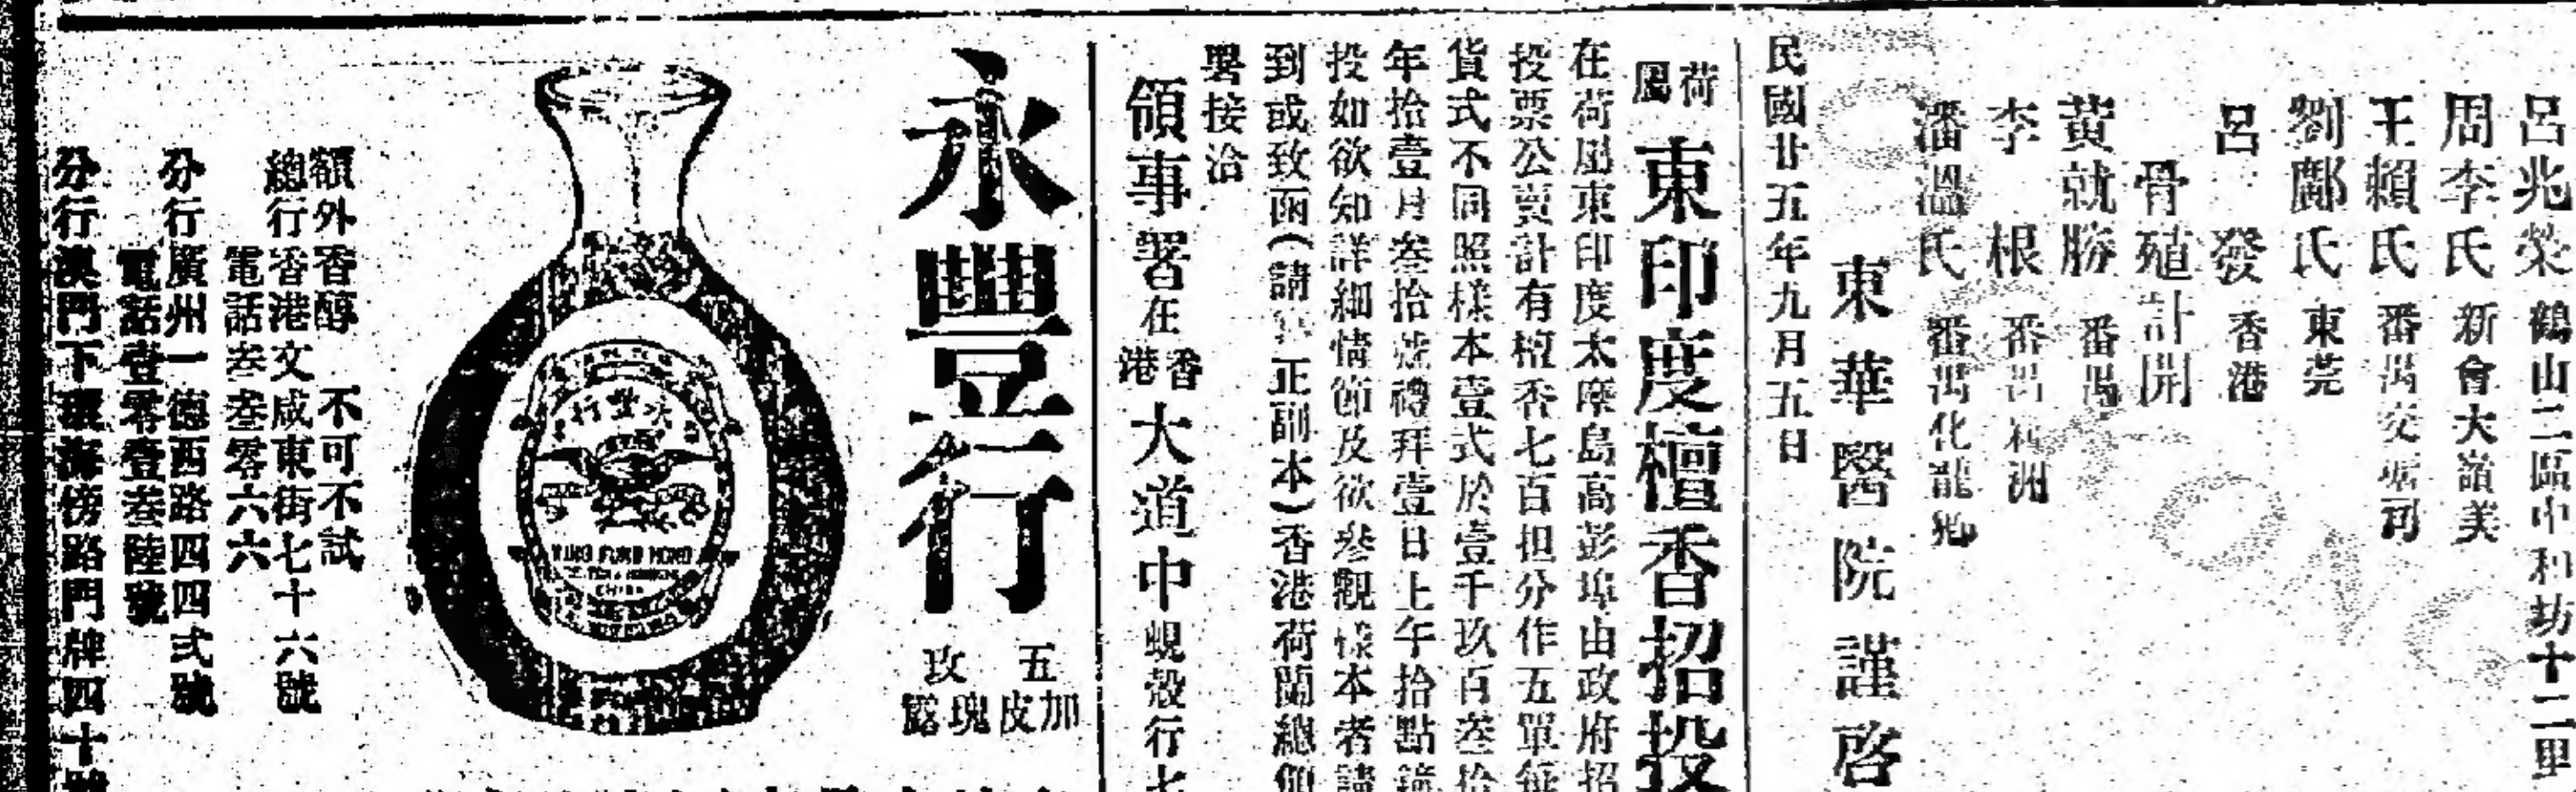 呂兆榮 鶴山二區中和坊十二里
周李氏 新會大嶺美
王賴氏 番禺交塘司
劉鄺氏 東莞
呂發 香港
骨殖計開
黃就勝 番禺
李根 番禺 洲
潘溫氏 番禺化龍鄉
東華醫院謹啓
民國廿五年九月五日
荷屬東印度檀香招投
在荷屬東印度太摩島高彭埠由政府招
投票公賣計有檀香七百担分作五單每
貨式不同照樣本壹式於壹千玖百叁拾
年拾壹月叁拾號禮拜壹日上午拾點鐘
投如欲知詳細情節及欲參觀樣本者請
到或致函(請 正副本)香港荷蘭總領
署接洽
領事署在香港大道中蜆殼行七
永豐行
五加皮
玫瑰露
永豐行
WING FUNG HONG
CHINA
額外香醇 不可不試
總行香港文咸東街七十六號
電話叁叁零六六
分行廣州一德西路四四式號
電話壹零壹叁陸號
分行澳門下環海傍路門牌四十號